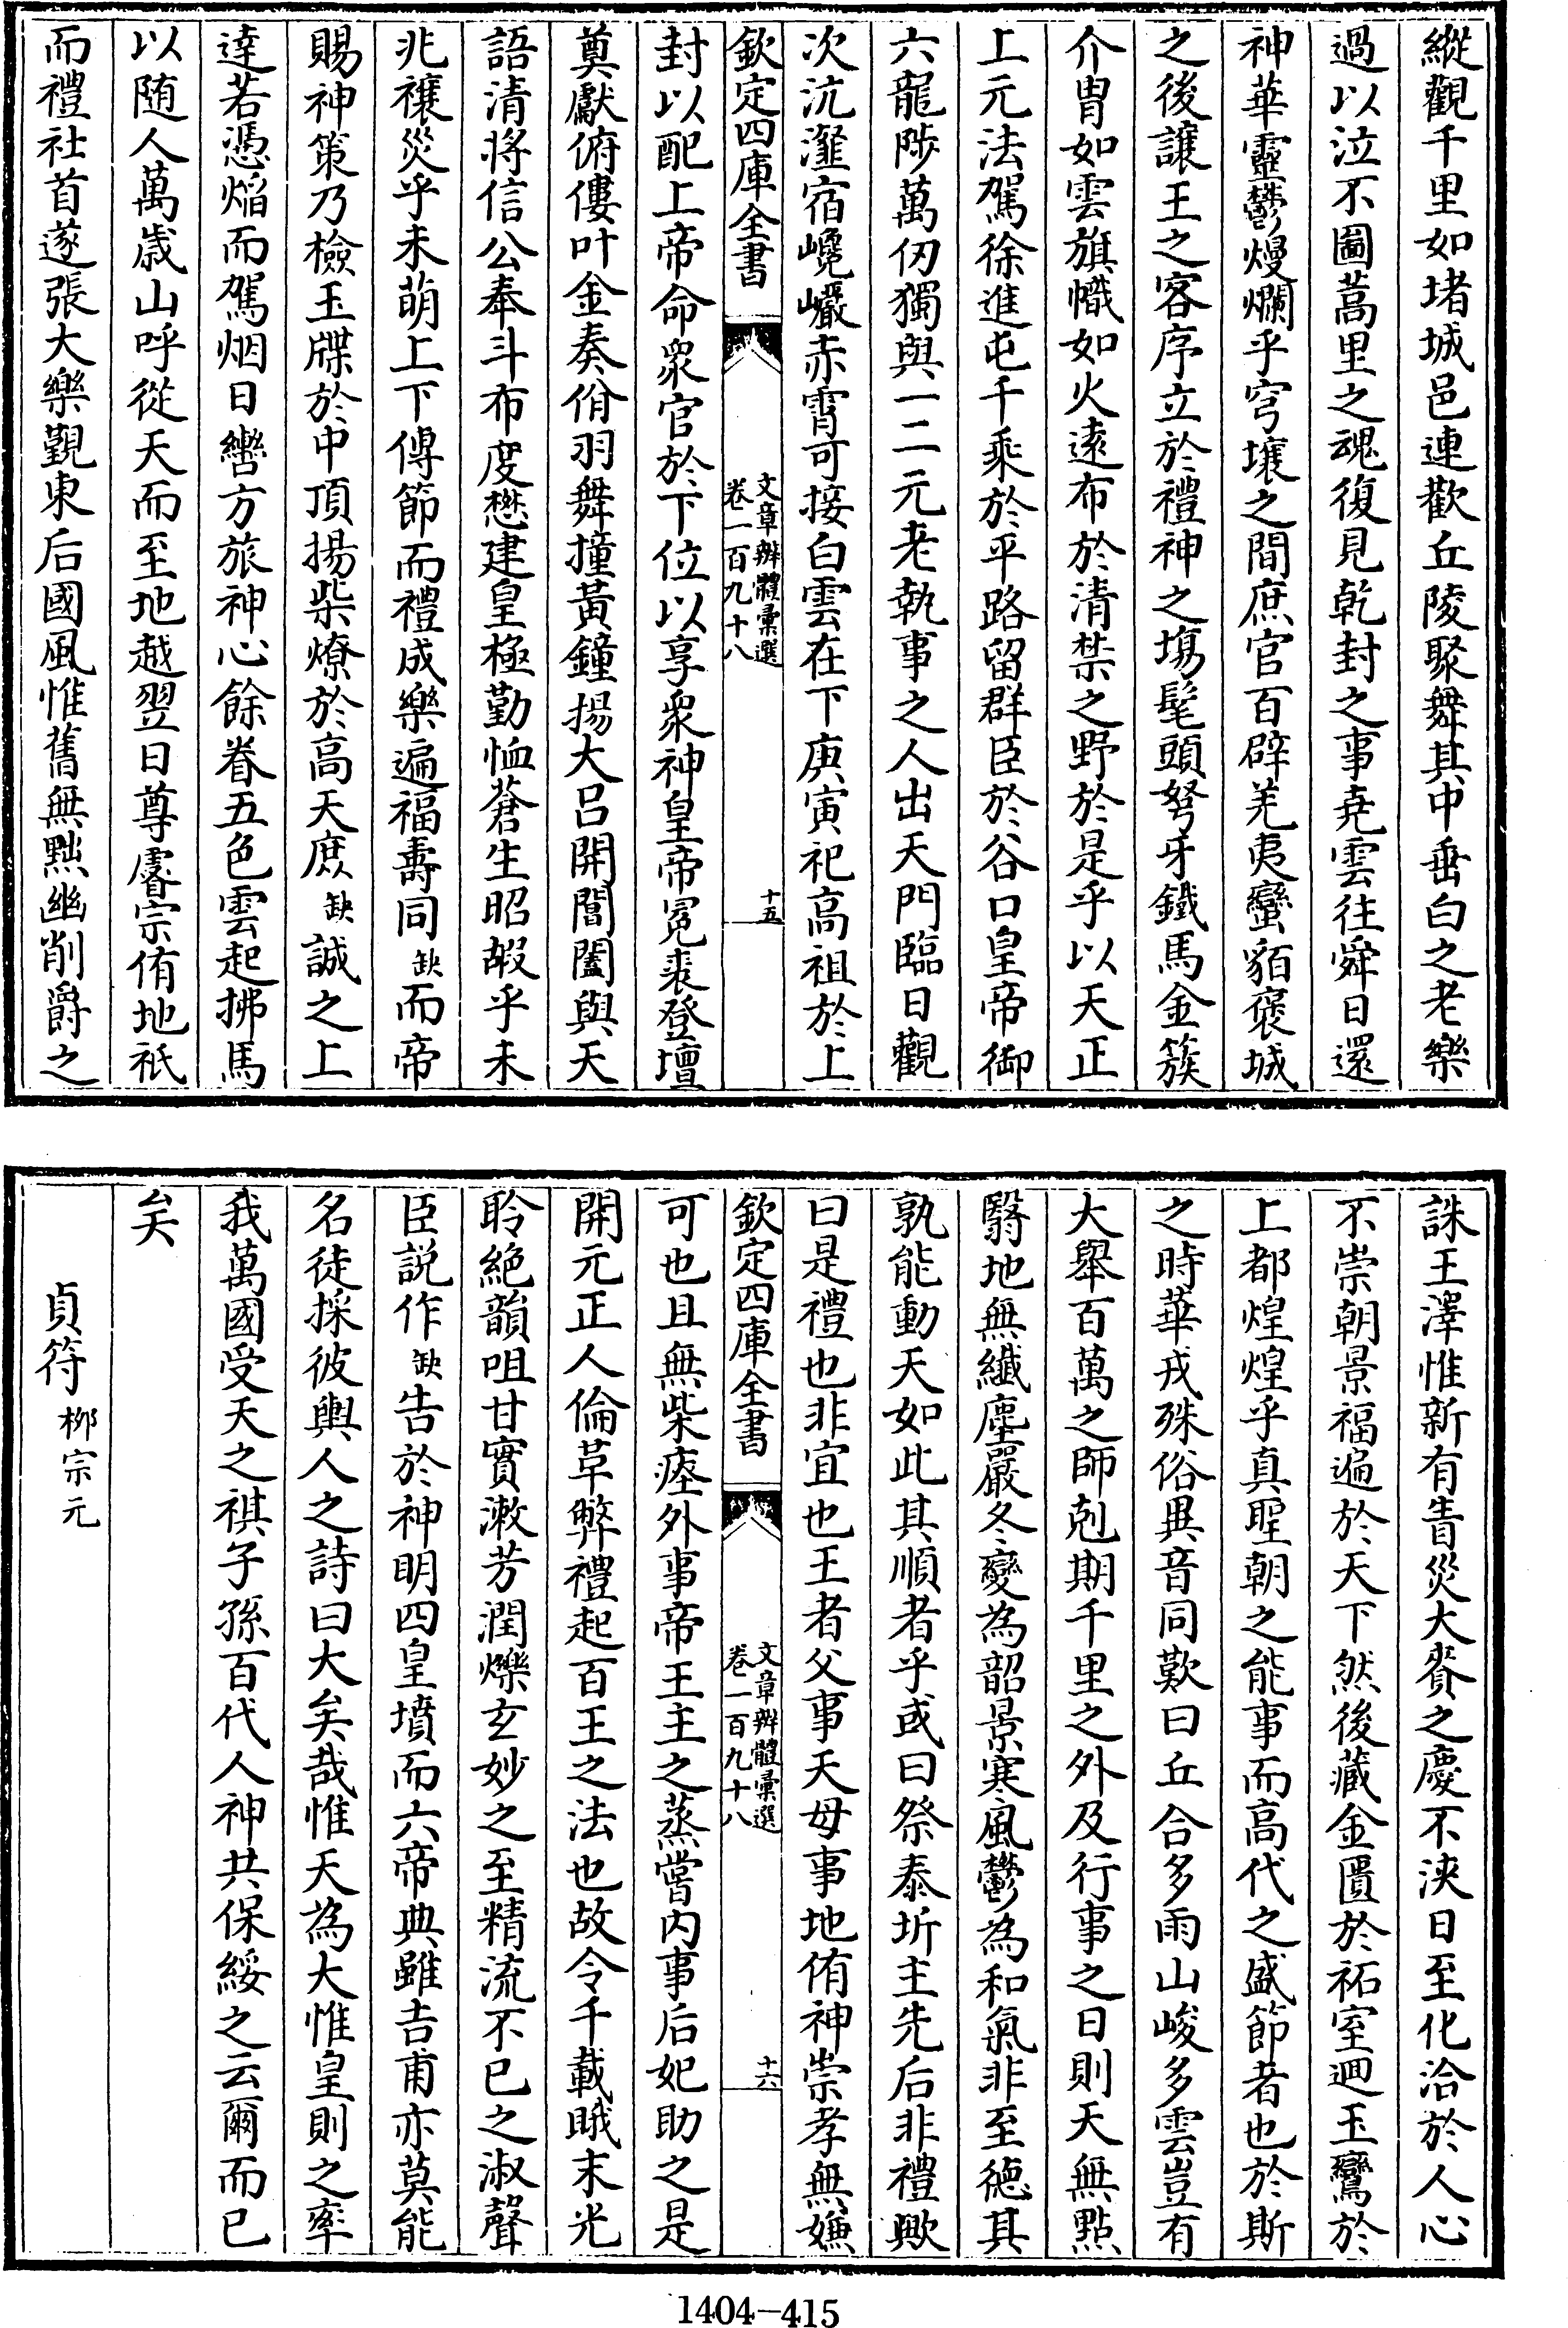 縱觀千里如堵城邑連歡丘陵聚舞其中垂白之老樂
過以泣不圖蒿里之魂復見乾封之事堯雲往舜日還
神華靈鬱熳爛乎穹壤之間庶官百辟羌夷蠻貊褒城
之後讓王之客序立於禮神之塲髦頭弩牙鐵馬金簇
介胄如雲旗幟如火遠布於清禁之野於是乎以天正
上元法駕徐進屯千乘於平路留群臣於谷口皇帝御
六龍陟萬仞獨與一二元老執事之人出天門臨日觀
次沆瀣宿巉巗赤霄可接白雲在下庚寅祀高祖於上
欽定四庫全書
文章辨體彙選
卷一百九十八
十五
封以配上帝命衆官於下位以享衆神皇帝冕裘登壇
奠獻俯僂叶金奏佾羽舞撞黃鐘揚大吕開閶闔與天
語清將信公奉斗布度懋建皇極勤恤蒼生昭嘏乎未
兆禳災乎未萌上下傅節而禮成樂遍福壽同缺而帝
賜神策乃檢玉牒於中頂揚柴燎於高天庶缺誠之上
達若憑焰而駕烟日轡方旅神心餘眷五色雲起拂馬
以随人萬歲山呼從天而至地越翌日尊睿宗侑地祇
而禮社首遂張大樂覲東后國風惟舊無黜幽削爵之
誅王澤惟新有眚災大賚之慶不浹日至化洽於人心
不崇朝景福遍於天下然後藏金匱於祏室迴玉鸞於
上都煌煌乎真聖朝之能事而高代之盛節者也於斯
之時華戎殊俗異音同歎曰丘合多雨山峻多雲豈有
大舉百萬之師剋期千里之外及行事之日則天無點
翳地無纖塵嚴冬變為韶景寒風鬱為和氣非至德其
孰能動天如此其順者乎或曰祭泰圻主先后非禮歟
曰是禮也非宜也王者父事天母事地侑神崇孝無嫌
欽定四庫全書
文章辨體彙選
卷一百九十八
十六
可也且無柴瘞外事帝王主之蒸嘗内事后妃助之是
開元正人倫革弊禮起百王之法也故令千載眂末光
聆絶韻咀甘實漱芳潤爍玄妙之至精流不已之淑聲
臣説作缺告於神明四皇墳而六帝典雖吉甫亦莫能
名徒採彼輿人之詩曰大矣哉惟天為大惟皇則之率
我萬國受天之祺子孫百代人神共保綏之云爾而已
矣
貞符柳宗元
1404-415